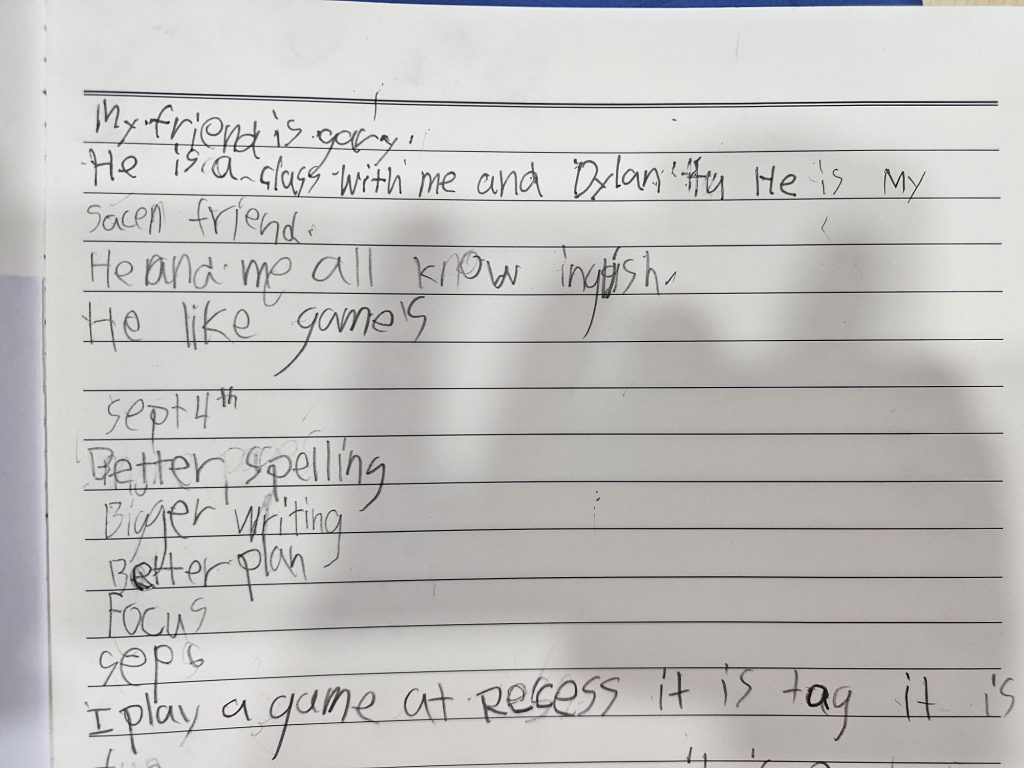 My friend is gary.
He is a class with me and Dylan Hu He is My
sacen friend.
He and me all know ingtish.
He like game's
sept 4th
Better spelling
Bigger writing
Better plan
Focus
sep 6
I play a game at Recess it is tag it is
fun